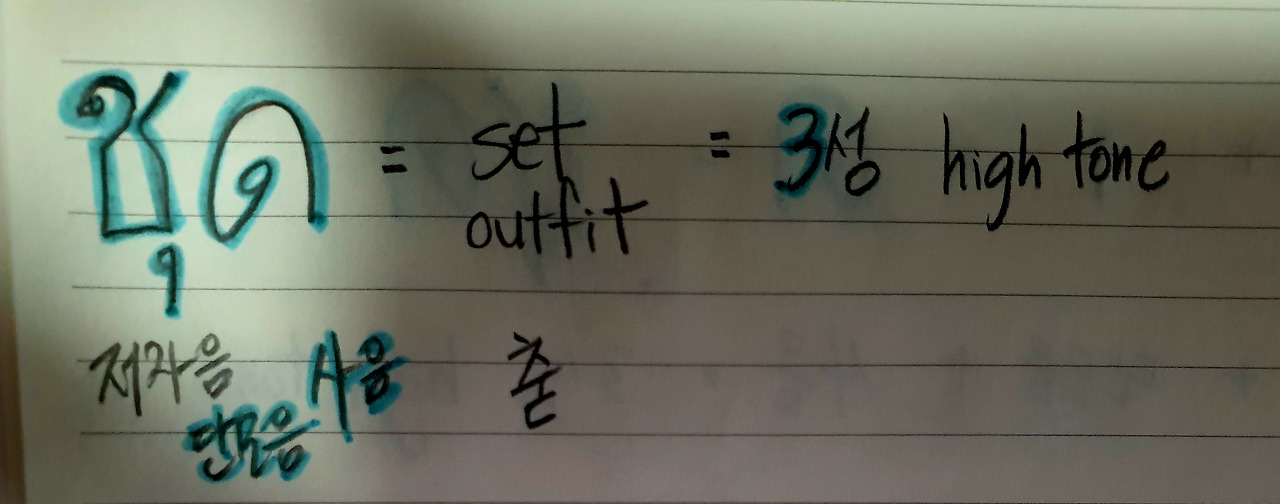 ชุด = set = 3성 high tone
outfit
저자음 사음 춛
단모음